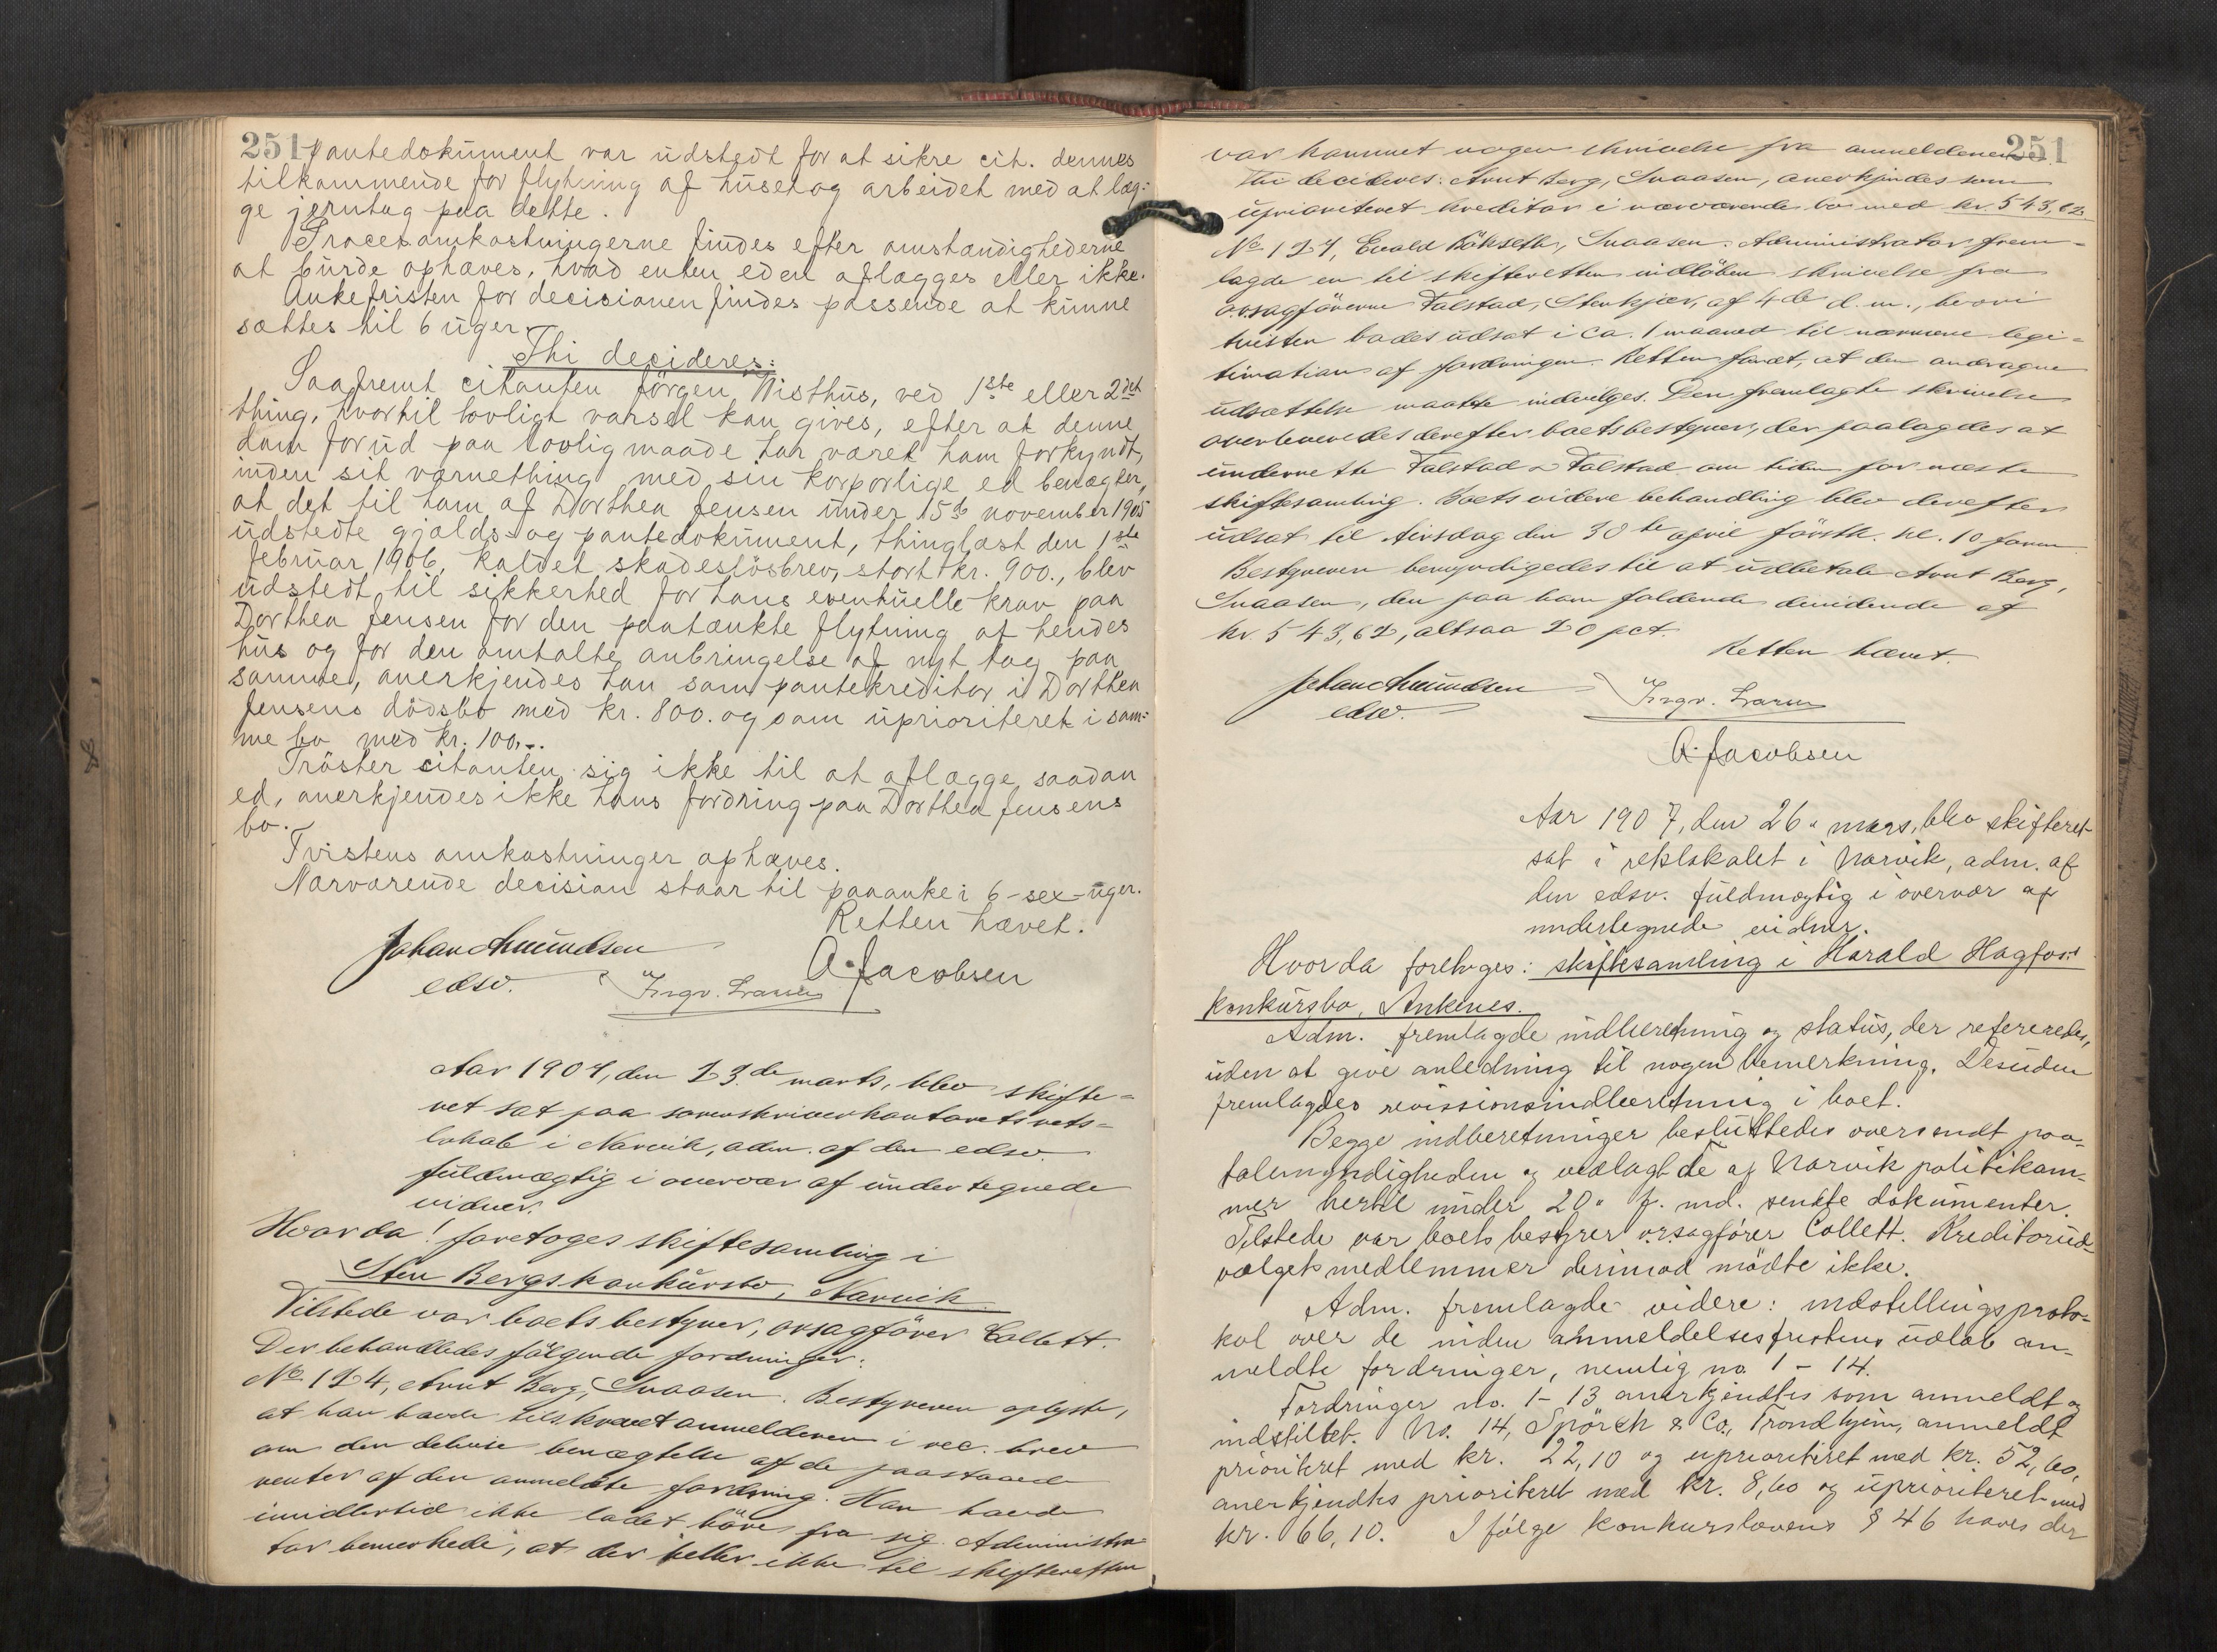 251
pantedokument var udstedt for at sikre cit. dennes
tilkommende for flytning af huset og arbeidet med at læg-
ge jerntag paa dette.
Procesomkostningerne findes efter omstændighederne
at burde ophæves, hvad enten eden aflægges eller ikke.
Ankefristen for decisionen findes passende at kunne
sættes til 6 uger.
Thi decideres:
Saafremt citanten Jörgen Nisthus, ved 1ste eller 2det
thing, hvortil lovligt varsel kan gives, efter at denne
dom forud paa lovlig maade har været ham forkyndt,
inden sit værnething med sin korporlige ed benægter,
at det til ham af Dorthea Jensen under 15de november 1905
udstedte gjælds- og pantedokument, thinglæst den 1ste
februar 1906, kaldet skadeslösbrev, stort kr. 900., blev
udstedt til sikkerhed for hans eventuelle krav paa
Dorthea Jensen for den paatænkte flytning af hendes
hus og for den omtalte anbringelse af nyt tag paa
samme, anerkjendes han som pantekreditor i Dorthea
Jensens dödsbo med kr. 800. og som uprioriteret i sam-
me bo med kr. 100,-.
Tröster citanten sig ikke til at aflægge saadan
ed, anerkjendes ikke hans fordring paa Dorthea Jensens
bo.
Tvistens omkostninger ophæves.
Nærværende decision staar til paaanke i 6-sex-uger.
Retten hævet.
Johan Amundsen
edsv.
Ingv. Larsen
A. Jacobsen
Aar 1907, den 23de marts, blev skifte-
ret sat paa sorenskriverkontorets rets-
lokale i Narvik, adm. af den edsv.
fuldmægtig i overvær af undertegnede
vidner.
Hvorda! foretoges skiftesamling i
Sten Bergs konkursbo, Narvik.
Tilstede var boets bestyrer, orsagförer Collett.
Der behandledes fölgende fordringer:
No 124, Arnt Berg, Snaasen. Bestyreren oplyste,
at han havde tilskrevet anmelderen i rec. brev
om den delvise benægtelse af de paastaaede
renter af den anmeldte fordring. Han havde
imidlertid ikke ladet höre fra sig. Administra-
tor bemerkede, at der heller ikke til skifteretten
251
var kommet nogen skrivelse fra anmelderen.
Thi decideres: Arnt Berg, Snaasen, anerkjendes som
uprioriteret kreditor i nærværende bo med kr. 543,62.
No 127, Evald Bökseth, Snaasen. Administrator frem-
lagde en til skifteretten indlöben skrivelse fra
orsagförerne Falstad, Stenkjær, af 4de d.m., hvori
tvisten bades udsat i ca. 1 maaned til nærmere legi-
timation af fordringen. Retten fandt, at den andragne
udsættelse maatte indvilges. Den fremlagte skrivelse
overleveredes derefter boets bestyrer, der paalagdes at
underrette Falstad & Falstad om tiden for næste
skiftesamling. Boets videre behandling blev derefter
udsat til tirsdag den 30te april förstk. kl. 10 form.
Bestyreren bemyndigedes til at udbetale Arnt Berg,
Snaasen, den paa ham faldende dividende af
kr. 543,62, altsaa 20 pct.
Retten hævet.
Johan Amundsen
edsv.
Ingv. Larsen
A. Jacobsen
Aar 1907, den 26. mars, blev skifteret
sat i retslokalet i Narvik, adm. af
den edsv. fuldmægtig i overvær af
undertegnede vidner.
Hvorda foretoges: skiftesamling i Harald Hagfors
konkursbo, Ankenes.
Adm. fremlagde indberetning og status, der refereredes,
uden at give anledning til nogen bemerkning. Desuden
fremlagdes revisionsindberetning i boet.
Begge indberetninger besluttedes oversendt paa-
talemyndigheden og vedlagt de af Narvik politikam-
mer hertil under 20. f. md. sendte dokumenter.
Tilstede var boets bestyrer orsagfører Collett. Kreditorud-
valgets medlemmer derimod mödte ikke.
Adm. fremlagde videre: indstillingsproto-
kol over de inden anmeldelsesfristens udløb an-
meldte fordringer, nemlig no. 1 - 14.
Fordringer no. 1-13 anerkjendtes som anmeldt og
indstillet. No. 14, Spörck & Co., Trondhjem, anmeldt
prioriteret med kr. 22,10 og uprioriteret med kr. 52,60,
anerkjendtes prioriteret med kr. 8,60 og uprioriteret med
kr. 66,10. Ifølge konkurslovens § 46 haves der